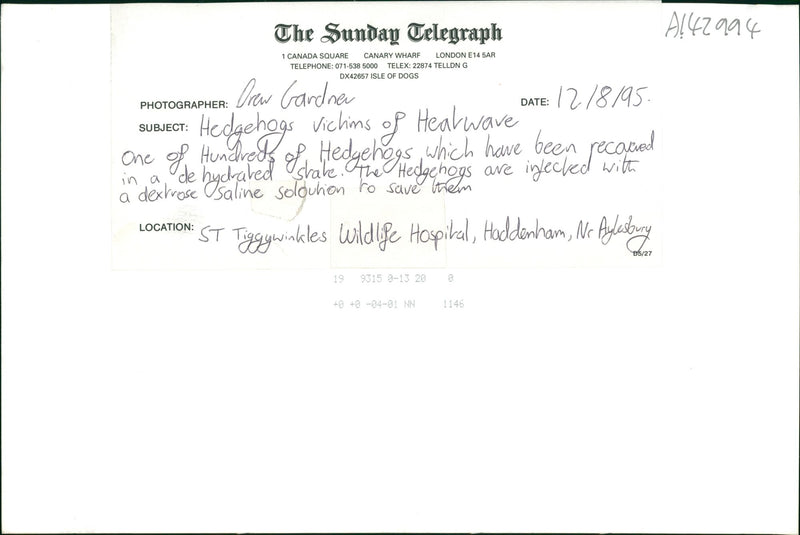 The Sunday Telegraph
A142994
1 CANADA SQUARE CANARY WHARF LONDON E14 5AR
TELEPHONE: 071-538 5000 TELEX: 22874 TELLDN G
DX42657 ISLE OF DOGS
PHOTOGRAPHER: Drew Gardner DATE: 12/8/95.
SUBJECT: Hedgehogs victims of Heatwave
One of Hundreds of Hedgehogs which have been recovered
in a dehydrated state. The Hedgehogs are injected with
a dextrose saline soloution to save them
LOCATION: ST Tiggywinkles Wildlife Hospital, Haddenham, Nr Aylesbury
DS/27
19 9315 0-13 20 0
+0 +0 -04-01 NN 1146